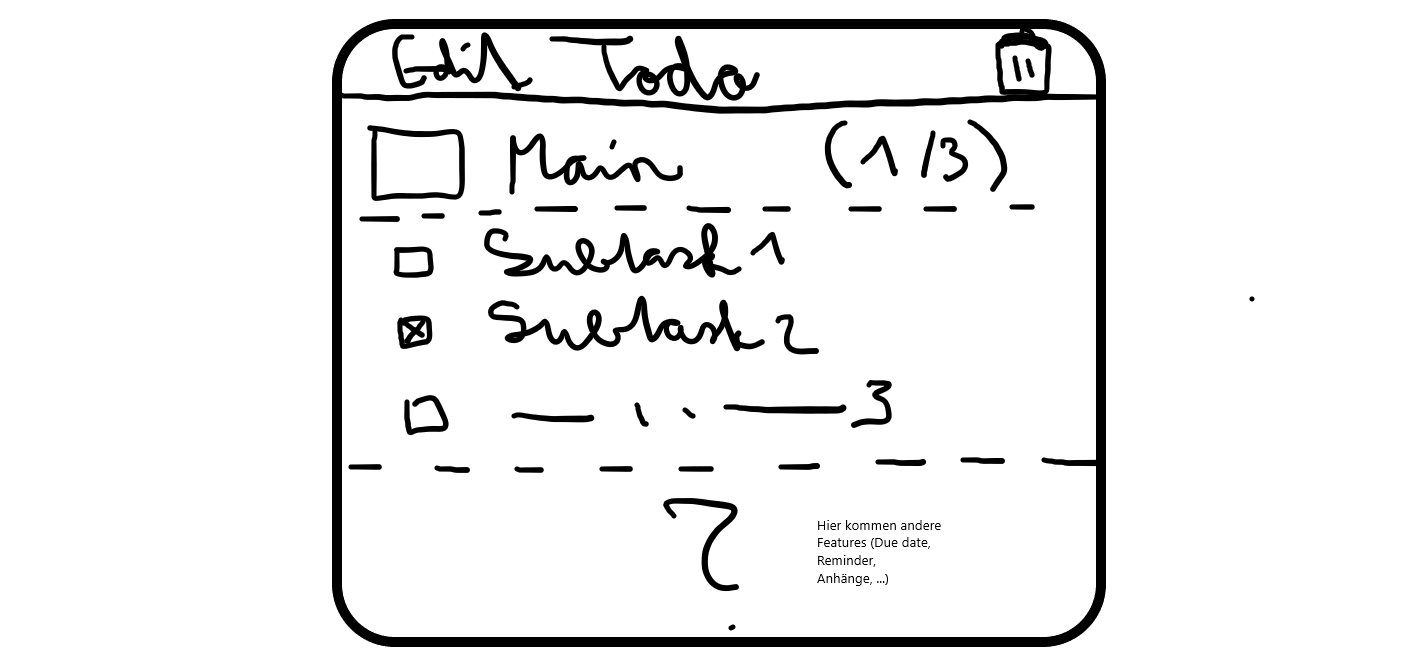 Edit Todo
Main (1/3)
Subtask 1
Subtask 2
— .. — 3
?
Hier kommen andere
Features (Due date,
Reminder,
Anhänge, ...)